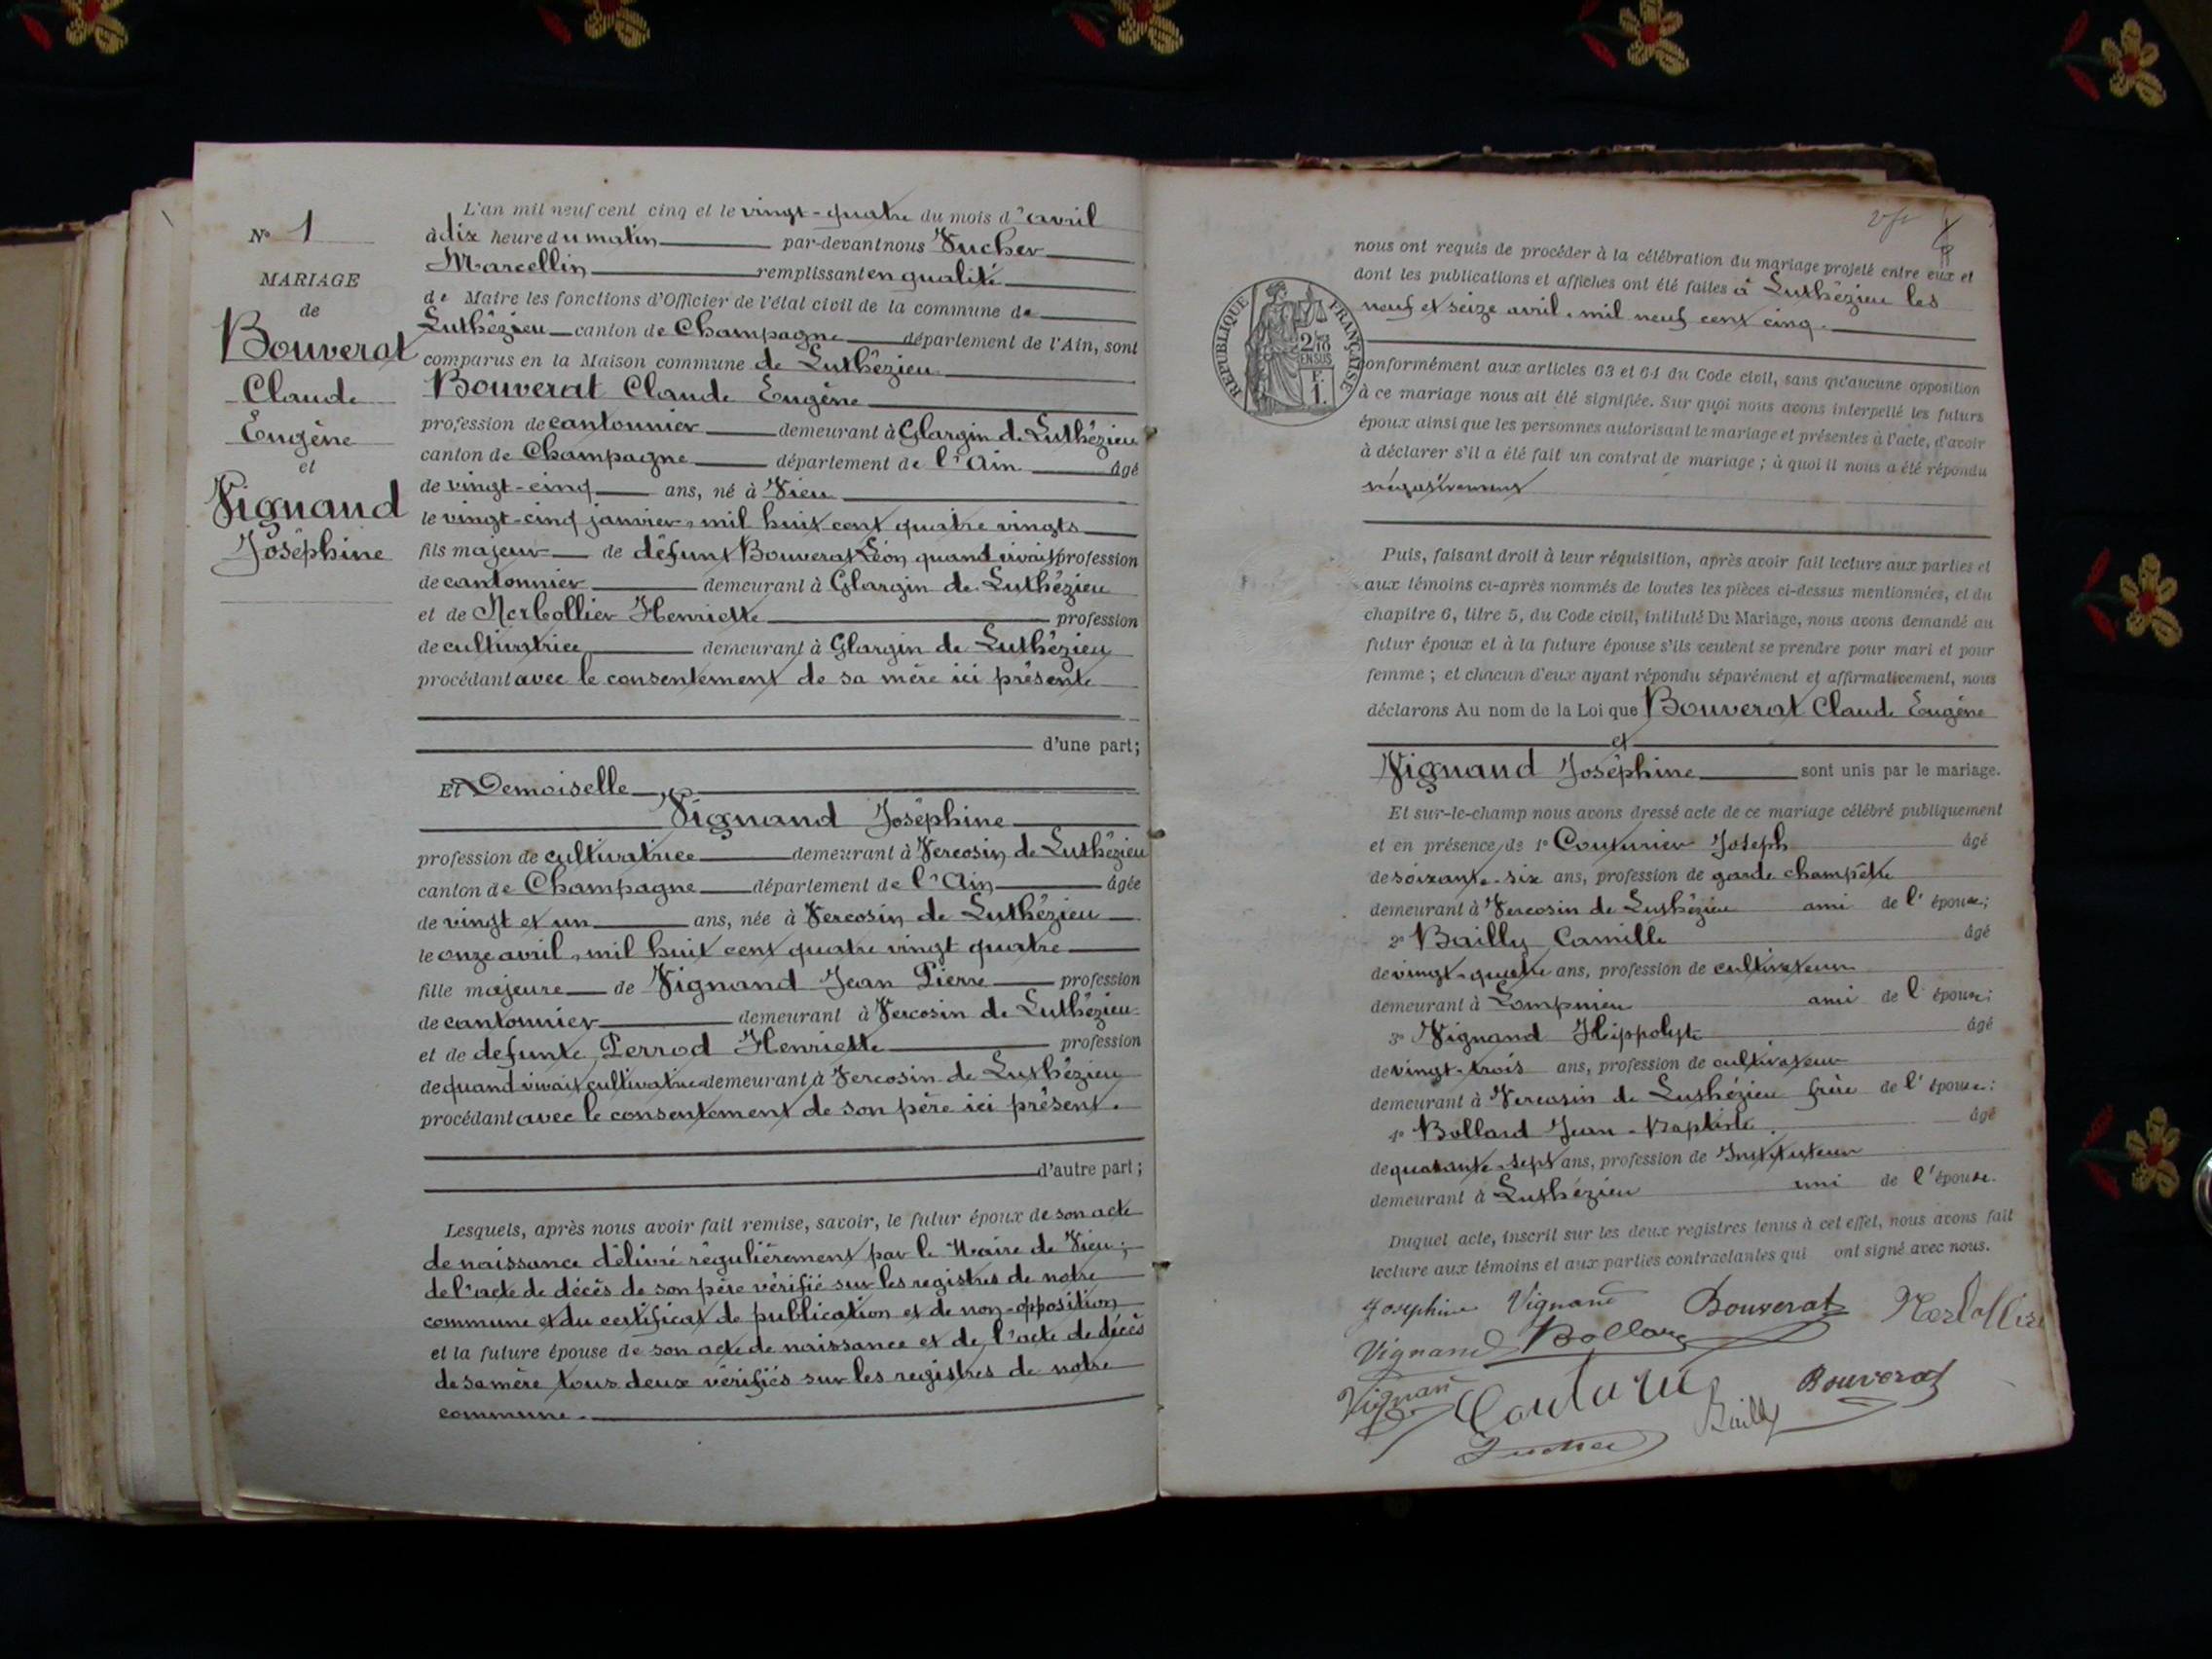 N° 1
MARIAGE
de
Bouverat
Claude
Eugène
et
Vignand
Joséphine
L'an mil neuf cent cinq et le vingt-quatre du mois d'avril
à dix heure du matin par-devant nous Sucher
Marcellin remplissant en qualité
de Maire les fonctions d'Officier de l'état civil de la commune de
Luthézieu canton de Champagne département de l'Ain, sont
comparus en la Maison commune de Luthézieu
Bouverat Claude Eugène
profession de cantonnier demeurant à Glargin de Luthézieu
canton de Champagne département de l'Ain âgé
de vingt-cinq ans, né à Vieu
le vingt-cinq janvier, mil huit cent quatre vingts
fils majeur de défunt Bouverat Léon, quand vivait profession
de cantonnier demeurant à Glargin de Luthézieu
et de Merlollier Henriette profession
de cultivatrice demeurant à Glargin de Luthézieu
procédant avec le consentement de sa mère ici présente
d'une part;
Et Demoiselle
Vignand Joséphine
profession de cultivatrice demeurant à Vercosin de Luthézieu
canton de Champagne département de l'Ain âgée
de vingt et un ans, née à Vercosin de Luthézieu
le onze avril, mil huit cent quatre vingt quatre
fille majeure de Vignand Jean Pierre profession
de cantonnier demeurant à Vercosin de Luthézieu
et de defunte Perrod Henriette profession
de quand vivait cultivatrice demeurant à Vercosin de Luthézieu
procédant avec le consentement de son père ici présent.
d'autre part;
Lesquels, après nous avoir fait remise, savoir, le futur époux de son acte
de naissance délivré régulièrement par le Maire de Vieu;
de l'acte de décès de son père vérifié sur les registres de notre
commune et du certificat de publication et de non-opposition
et la future épouse de son acte de naissance et de l'acte de décès
de sa mère tous deux vérifiés sur les registres de notre
commune.
nous ont requis de procéder à la célébration du mariage projeté entre eux et
dont les publications et affiches ont été faites à Luthézieu les
neuf et seize avril, mil neuf cent cinq.
RÉPUBLIQUE FRANÇAISE
2/10
EN SUS
F.
1.
conformément aux articles 63 et 64 du Code civil, sans qu'aucune opposition
à ce mariage nous ait été signifiée. Sur quoi nous avons interpellé les futurs
époux ainsi que les personnes autorisant le mariage et présentes à l'acte, d'avoir
à déclarer s'il a été fait un contrat de mariage; à quoi il nous a été répondu
négativement
Puis, faisant droit à leur réquisition, après avoir fait lecture aux parties et
aux témoins ci-après nommés de toutes les pièces ci-dessus mentionnées, et du
chapitre 6, titre 5, du Code civil, intitulé Du Mariage, nous avons demandé au
futur époux et à la future épouse s'ils veulent se prendre pour mari et pour
femme; et chacun d'eux ayant répondu séparément et affirmativement, nous
déclarons Au nom de la Loi que Bouverat Claude Eugène
et
Vignand Joséphine sont unis par le mariage.
Et sur-le-champ nous avons dressé acte de ce mariage célébré publiquement
et en présence de 1° Couturier Joseph âgé
de soixante-six ans, profession de garde champêtre
demeurant à Vercosin de Luthézieu ami de l'épouse;
2° Bailly Camille âgé
de vingt-quatre ans, profession de cultivateur
demeurant à Lompnieu ami de l'époux;
3° Vignand Hippolyte âgé
de vingt-trois ans, profession de cultivateur
demeurant à Vercosin de Luthézieu frère de l'épouse;
4° Bollard Jean-Baptiste. âgé
de quarante-sept ans, profession de Instituteur
demeurant à Luthézieu ami de l'épouse.
Duquel acte, inscrit sur les deux registres tenus à cet effet, nous avons fait
lecture aux témoins et aux parties contractantes qui ont signé avec nous.
Josephine Vignand Bouverat Merlollier
Vignand Bollard
Vignand Couturier Bailly Bouverat
Sucher